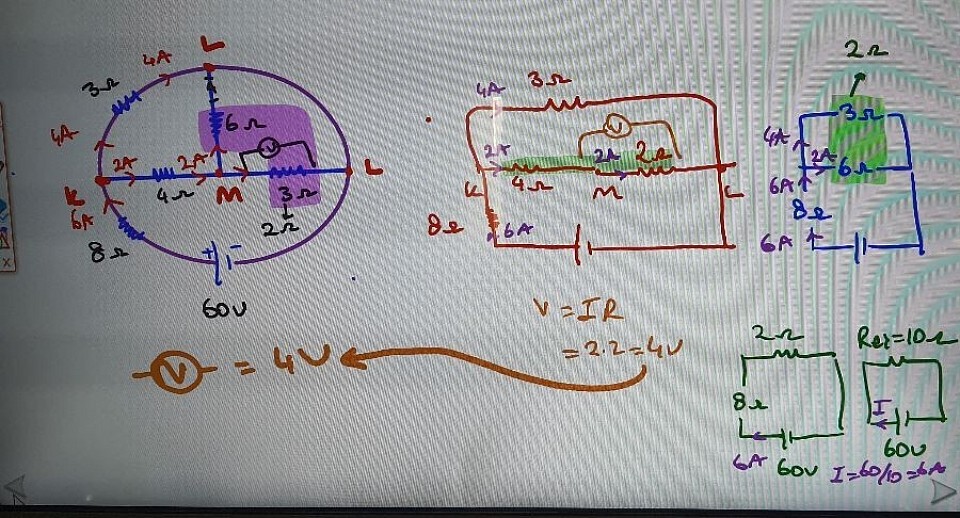 L
4A
3Ω
4A
6Ω
V
2A
2A
K
4Ω
M
3Ω
L
6A
2Ω
8Ω
+ -
60V
V = 4V
3Ω
4A
V
2A
2A
2Ω
K
4Ω
M
L
8Ω
6A
V = IR
= 2.2 = 4V
2Ω
3Ω
4A
2A
6Ω
6A
8Ω
6A
2Ω
8Ω
6A
60V
Reş=10Ω
I
60V
I=60/10=6A